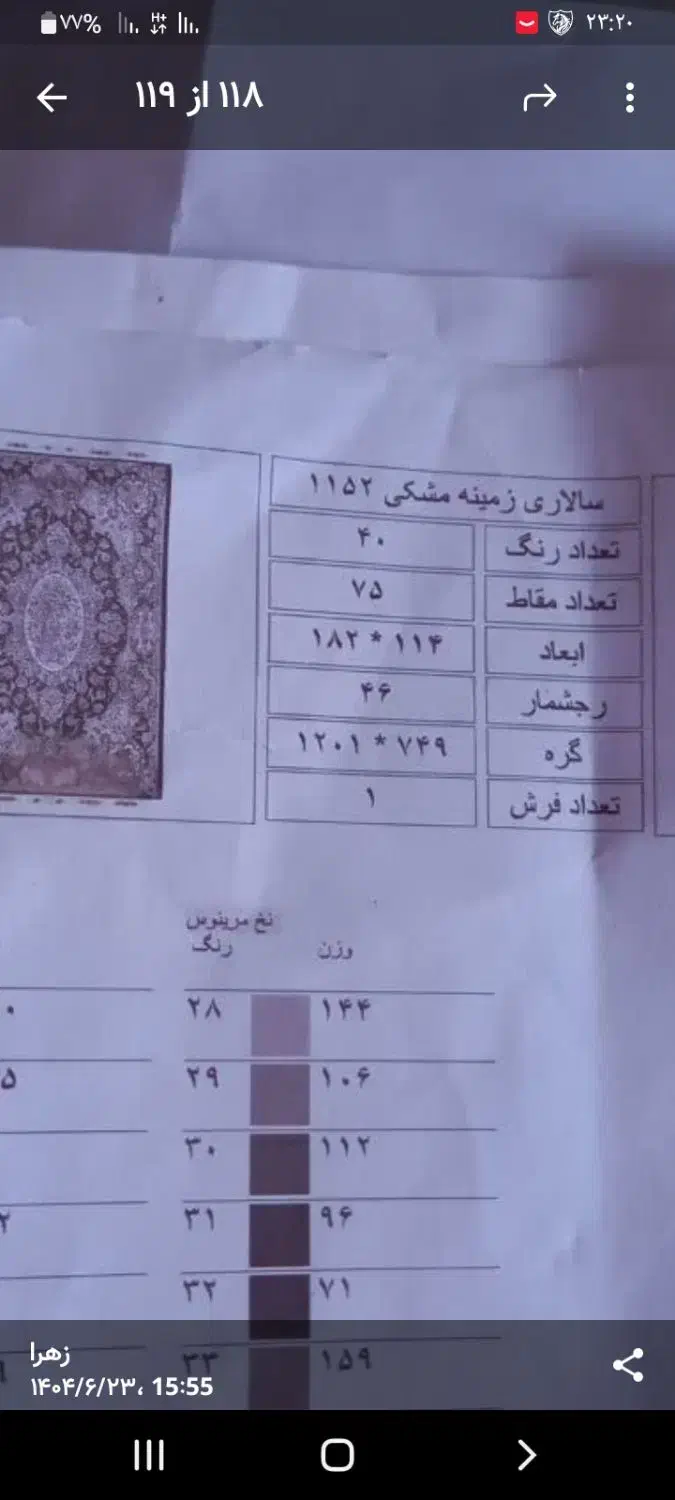 ۷۷% ۲۳:۲۰
۱۱۸ از ۱۱۹
سالاری زمینه مشکی ۱۱۵۲
تعداد رنگ ۴۰
تعداد مقاط ۷۵
ابعاد ۱۱۴ * ۱۸۲
رجشمار ۴۶
گره ۷۴۹ * ۱۲۰۱
تعداد فرش ۱
نخ مرینوس
رنگ وزن
۲۸ ۱۴۴
۲۹ ۱۰۶
۳۰ ۱۱۲
۳۱ ۹۶
۳۲ ۷۱
۳۳ ۱۵۹
زهرا
۱۴۰۴/۶/۲۳، 15:55